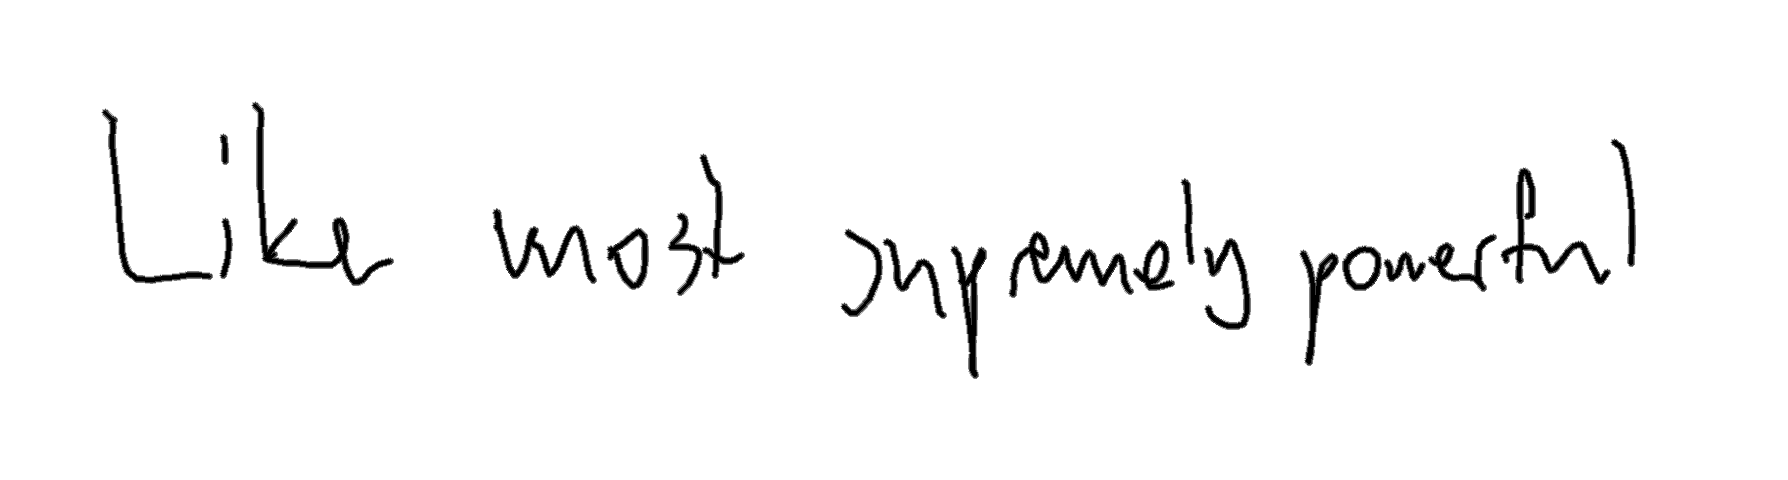 Like most supremely powerful